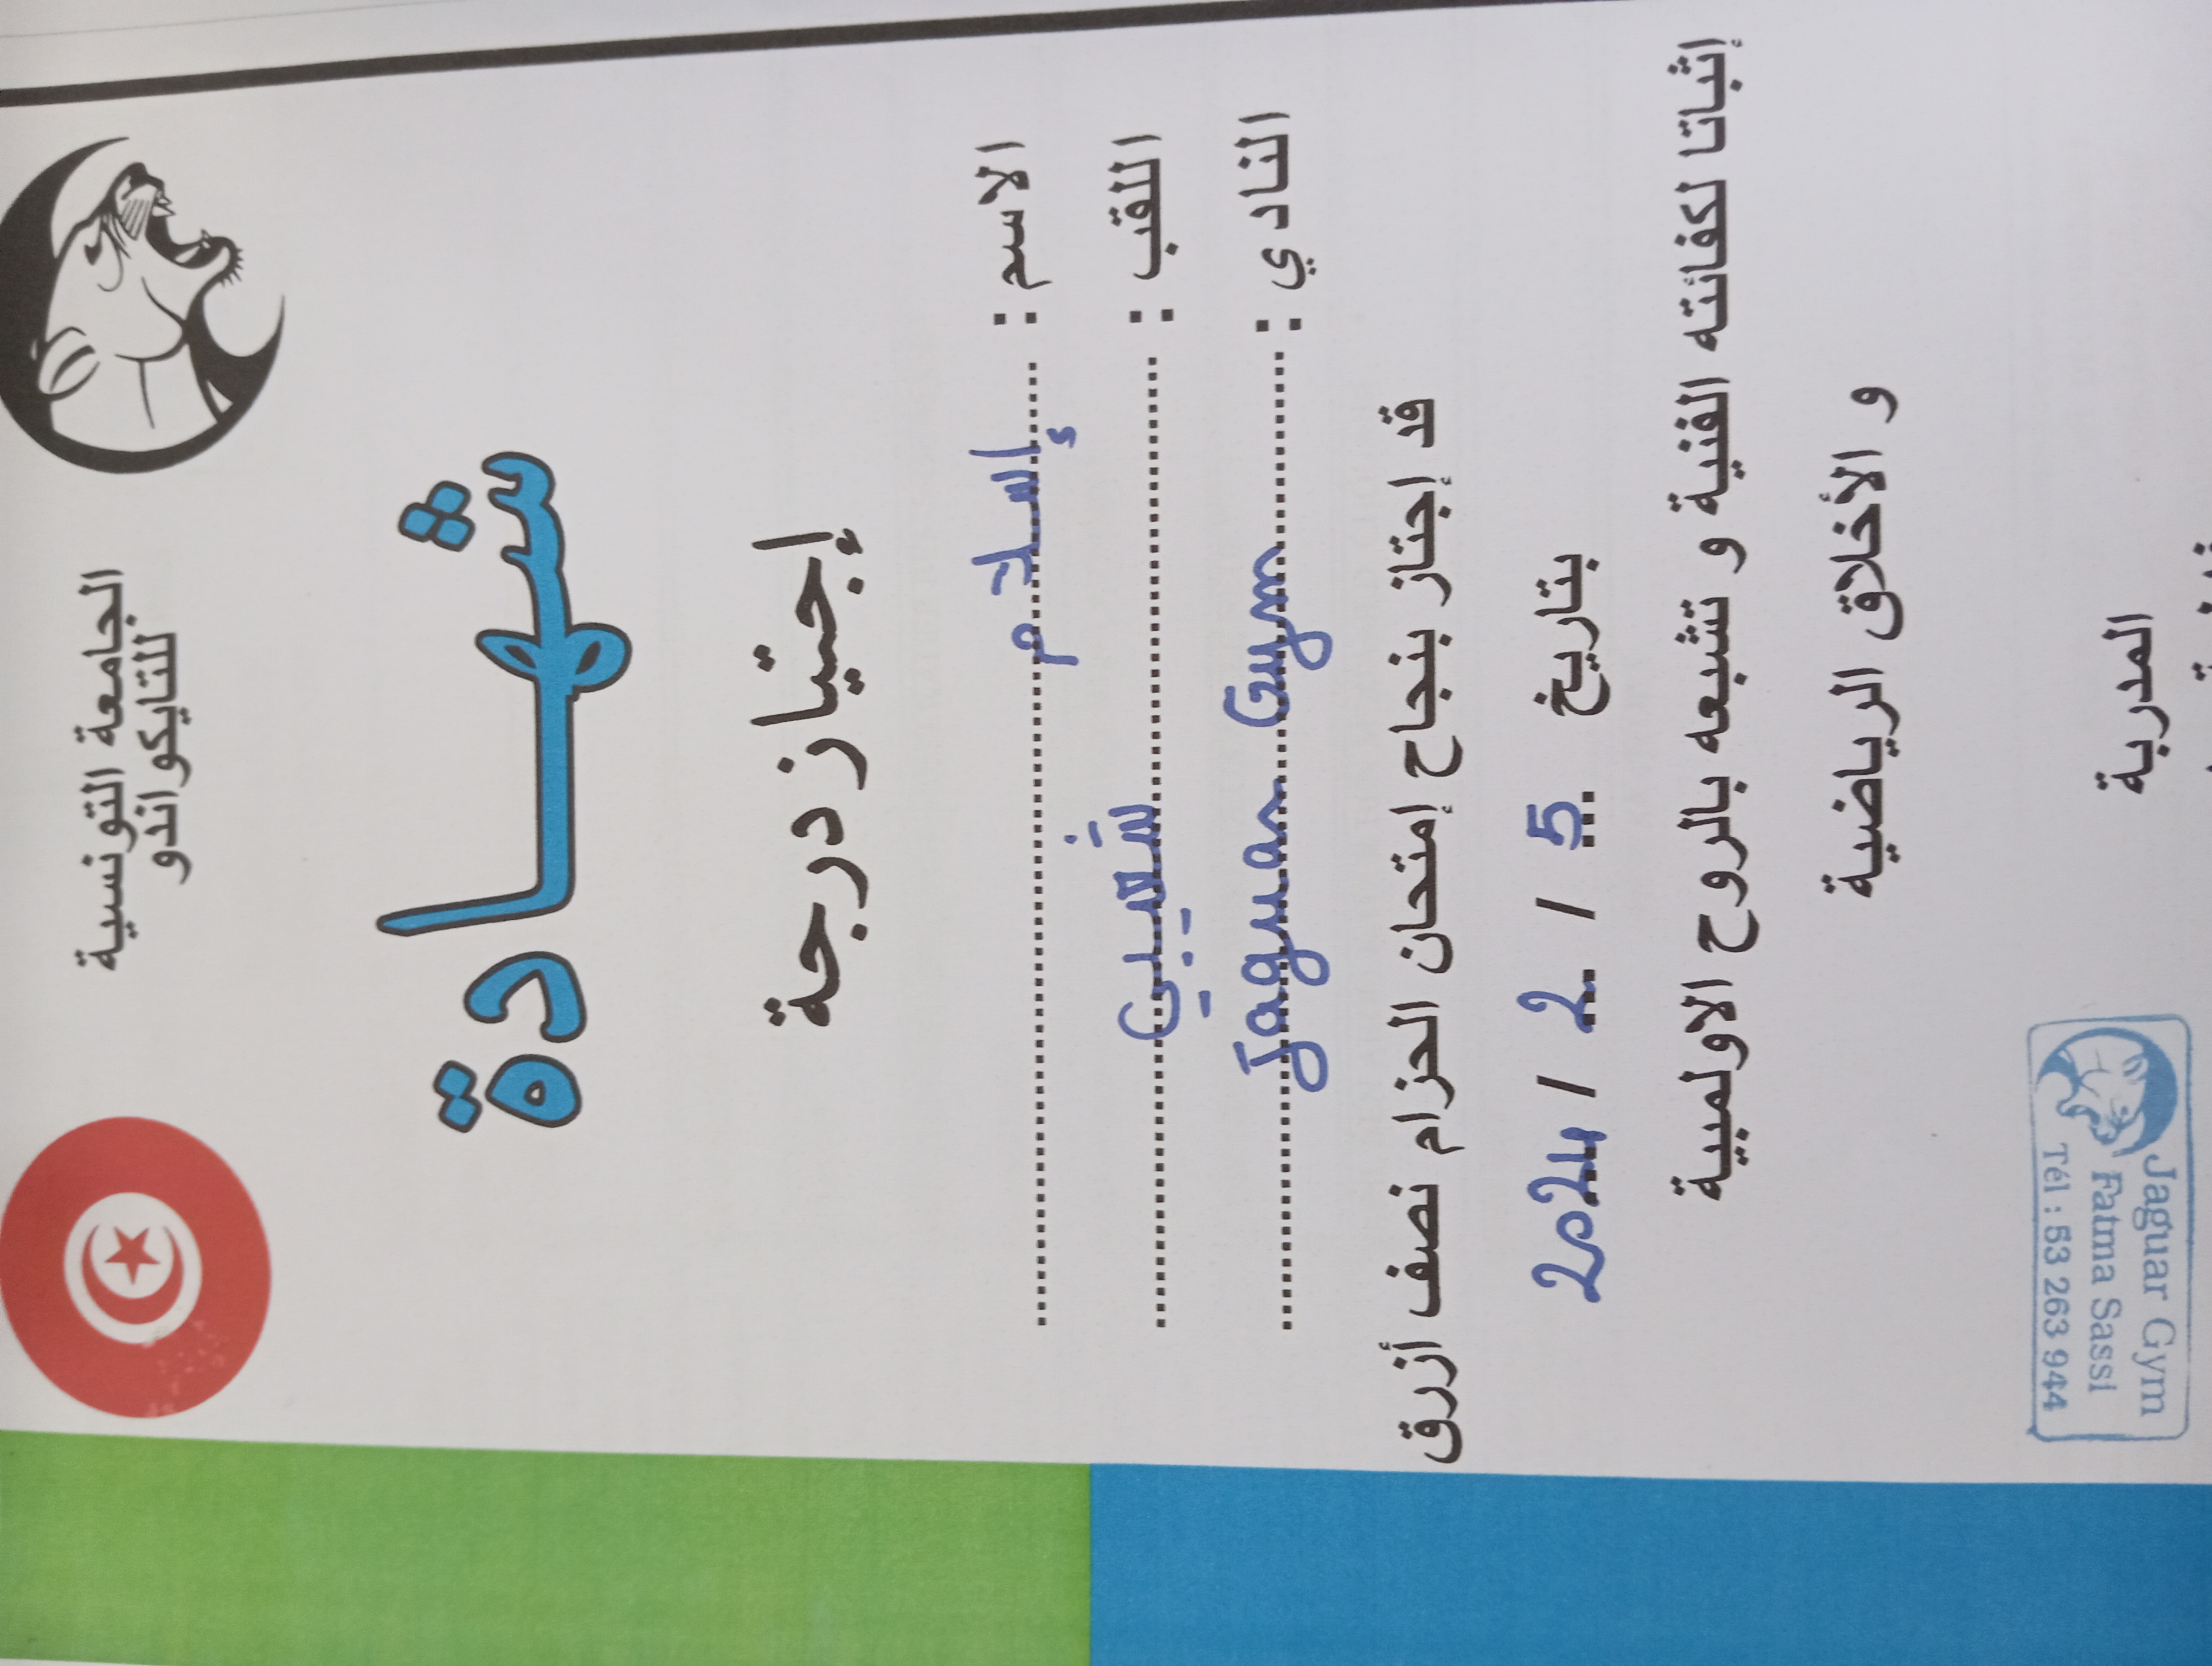 الجامعة التونسية
للتايكواندو
شهادة
إجتياز درجة
الاسم : إسلام
اللقب :
النادي : Jaguar Gym
قد إجتاز بنجاح إمتحان الحزام نصف أزرق
بتاريخ 5 / 2 / 2024
إثباتا لكفائته الفنية و تشبعه بالروح الاولمبية
و الأخلاق الرياضية
المدربة
Jaguar Gym
Fatma Sassi
Tél : 53 263 944